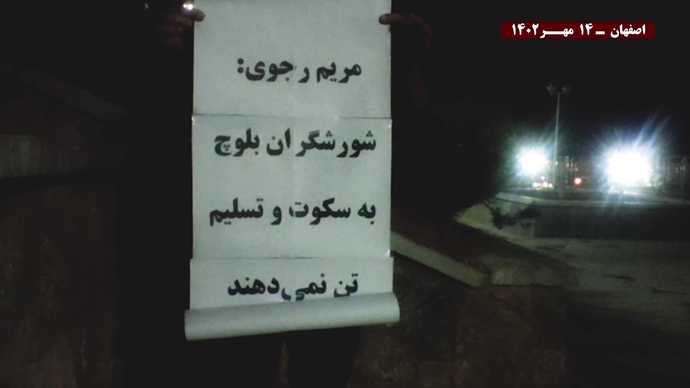 اصفهان ـ ۱۴ مهـر۱۴۰۲
مریم رجوی:
شورشگران بلوچ
به سکوت و تسلیم
تن نمی‌دهند